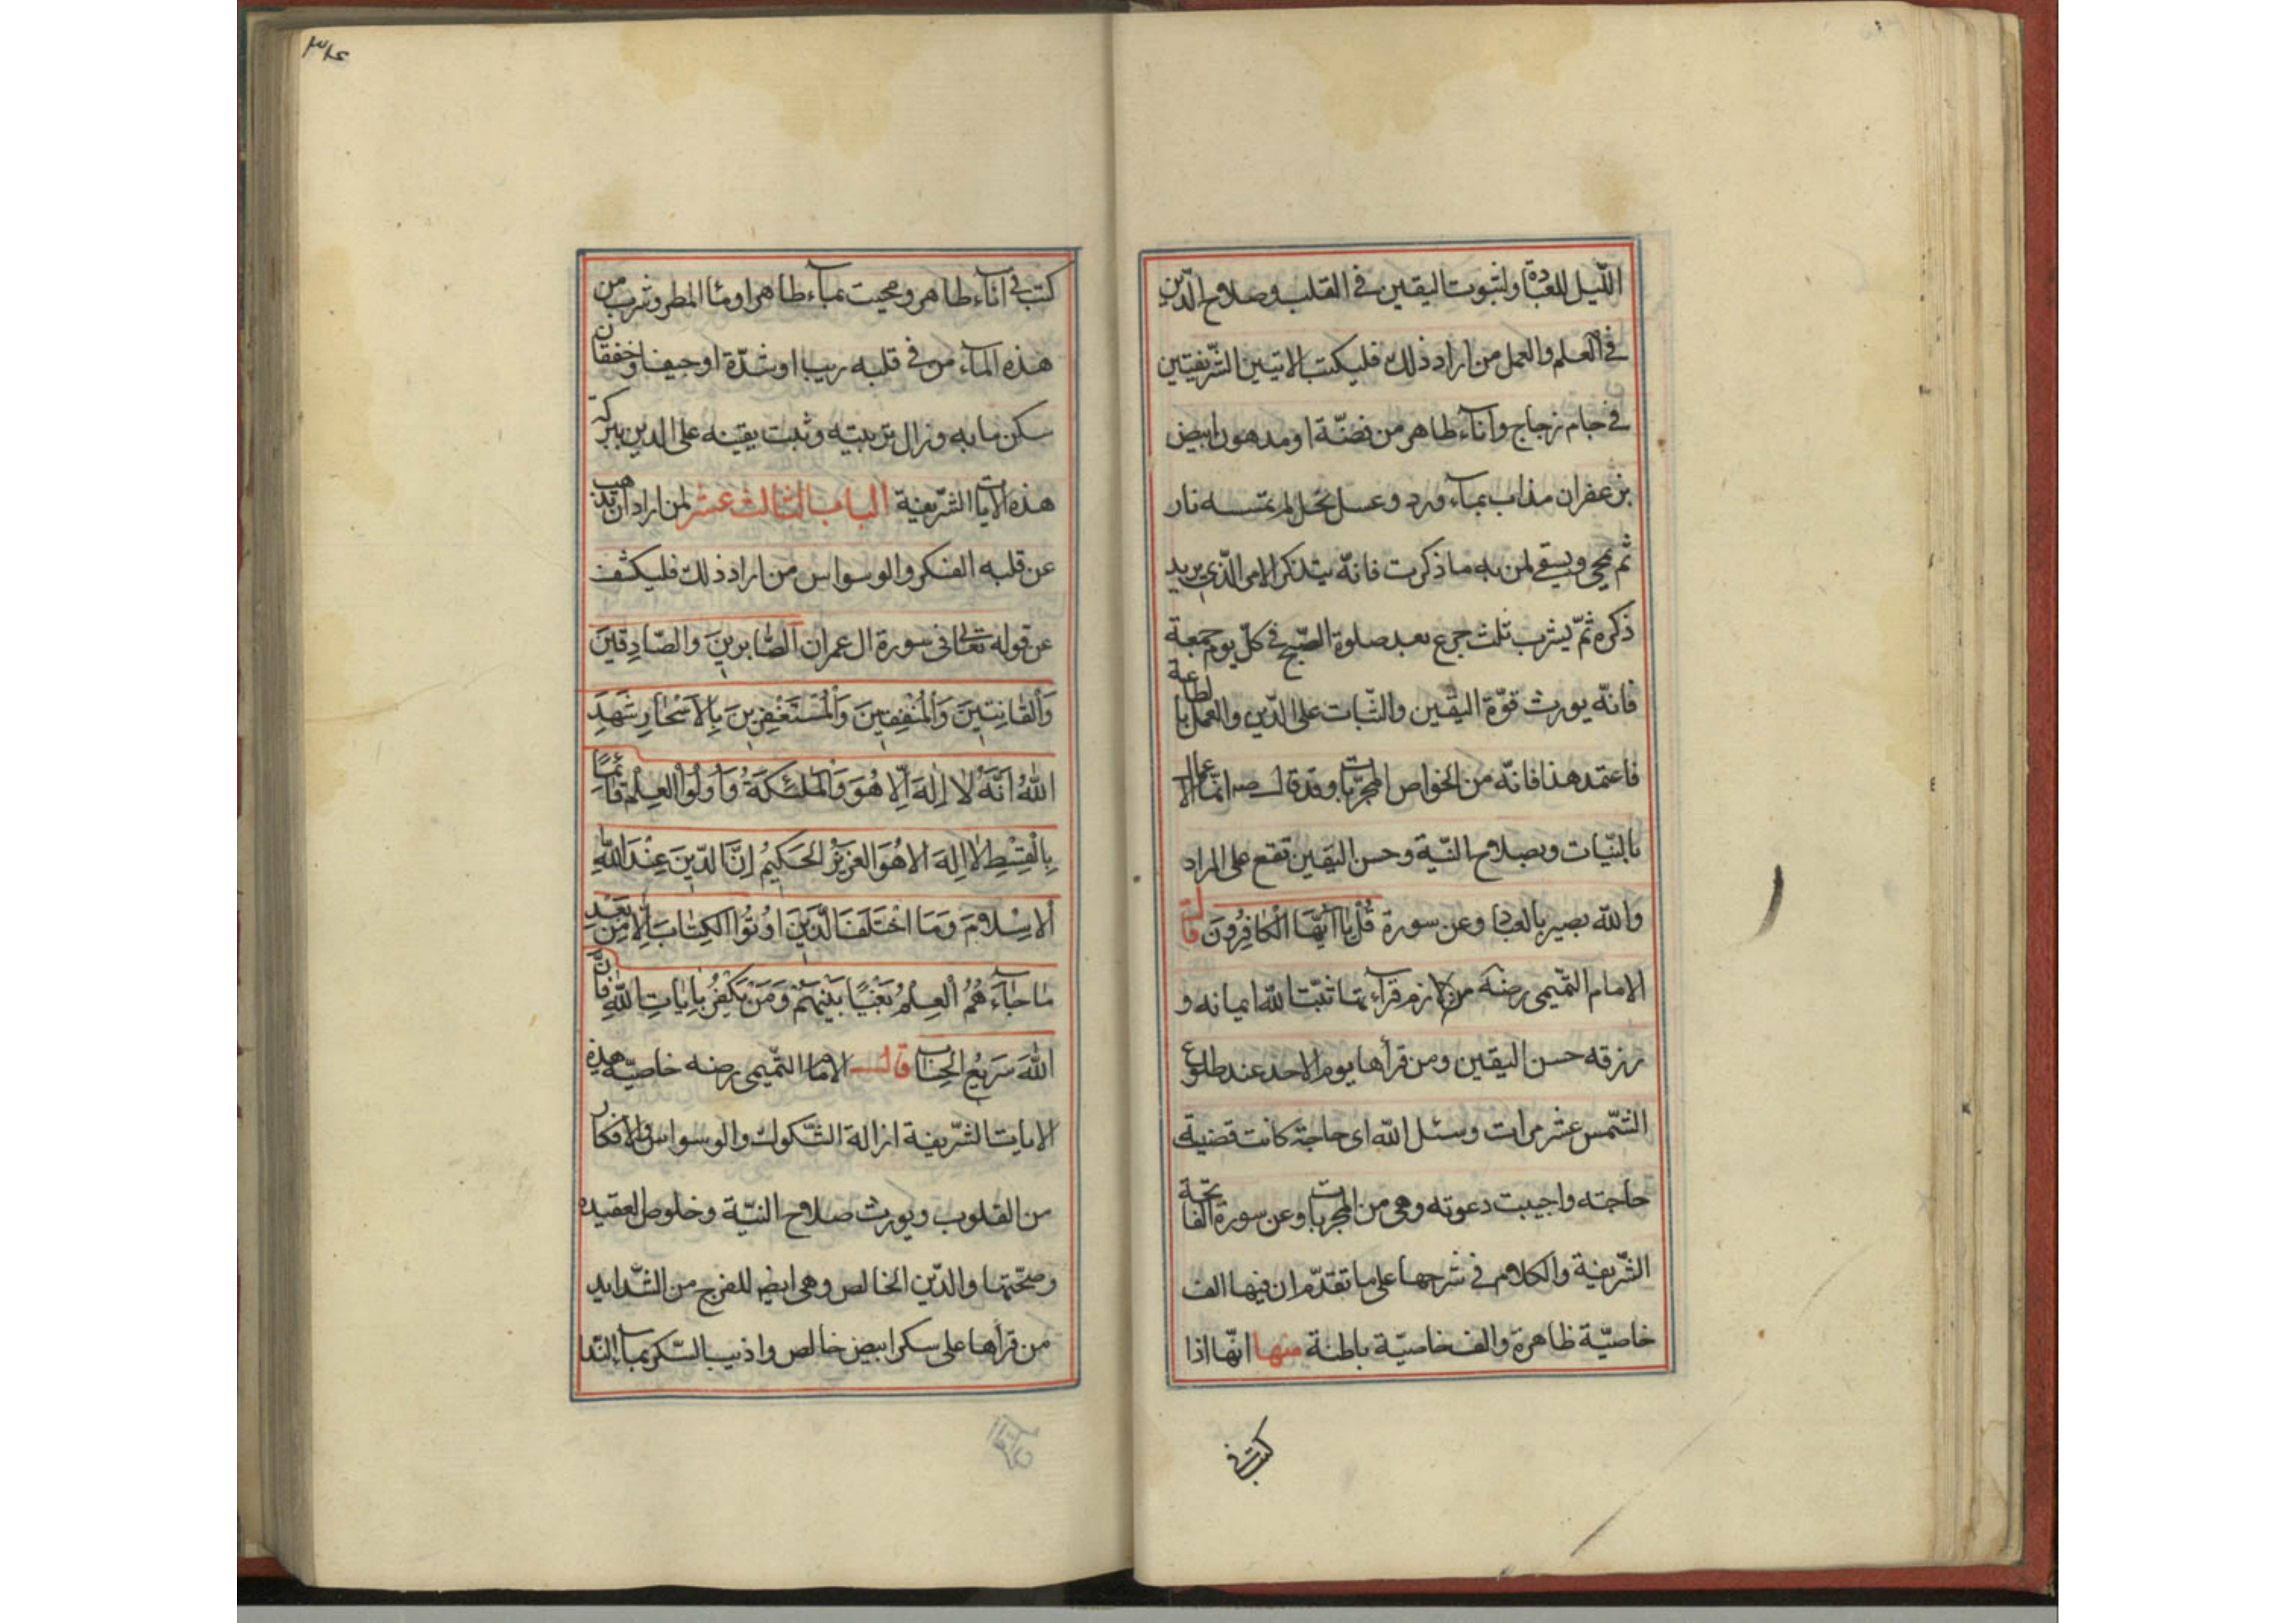 الليل للعبادة ولثبوت اليقين في القلب وصلاح الدّين
في العلم والعمل من اراد ذلك فليكتب الايتين الشّريفتين
في جام زجاج وانآء طاهر من فضّة او مدهون ابيض
بزعفران مذاب بمآء ورد وعسل نحل لم تمسه نار
ثم يمحى ويسقى لمن به ما ذكرت فانّه يتذكر الامر الّذي يريد
ذكره ثمّ يشرب ثلث جرع بعد صلوة الصّبح في كلّ يوم جمعة
فانّه يورث قوّة اليقين والثّبات على الدّين والعمل بالطاعة
فاعتمد هذا فانّه من الخواص المجرّبات وقد قال صه انّما الاعمال
بالنيّات وبصلاح النيّة وحسن اليقين تقع على المراد
والله بصير بالعباد وعن سورة قُل يا أيّهَا الْكافِرُونَ قال
الامام التّميمى رضه من لازم قرآءتها ثبّت الله ايمانه و
رزقه حسن اليقين ومن قرأها يوم الاحد عند طلوع
الشّمس عشر مرات وسئل الله اى حاجة كانت قضيت
حاجته واجيبت دعوته وهى من المجربات وعن سورة الفاتحة
الشّريفة والكلام في شرحها على ما تقدّم ان فيها الف
خاصيّة ظاهرة والف خاصيّة باطنة منها انّها اذا
كتبت في
٣٨٤
كتبت في انآء طاهر ومحيت بمآء طاهر او مآء المطر وشرب من
هذه المآء من في قلبه ريب او شدّة او جيفا وخفقان
سكن ما به وزال تربيته وثبت يقينه على الدين ببركة
هذه الايات الشّريفة الباب الثالث عشر لمن اراد ان يذهب
عن قلبه الفكر والوسواس من اراد ذلك فليكشف
عن قوله تعالى في سورة ال عمران الصّابرينَ والصّادِقينَ
وَالْقانِتينَ وَالْمُنْفِقينَ وَالْمُسْتَغْفِرينَ بِالاَسْحٰارِ شَهِدَ
اللهُ اَنَّهُ لا اِلٰهَ اِلّا هُوَ وَالْمَلٰئِكَةُ وَاُولُوا الْعِلْمِ قائِماً
بِالْقِسْطِ لا اِلهَ الا هُوَ العَزيزُ الحَكيمُ اِنَّ الدّينَ عِنْدَ اللهِ
الاِسْلامُ وَمَا اخْتَلَفَ الَّذينَ اُوتُوا الكِتابَ اِلّا مِنْ بَعْدِ
ما جآءَهُمُ العِلْمُ بَغْيًا بَيْنَهُمْ وَمَنْ يَكْفُرْ بِاياتِ اللهِ فَاِنَّ
اللهَ سَريعُ الحِسَابِ قال الامام التّميمى رضه خاصيّة هذه
الايات الشّريفة ازالة الشّكوك والوسواس والافكار
من القلوب ويورث صلاح النيّة وخلوص العقيده
وصحّتها والدّين الخالص وهى ايض للفرج من الشّدايد
من قرأها على سكر ابيض خالص واذيب السّكر بمآء النّدا